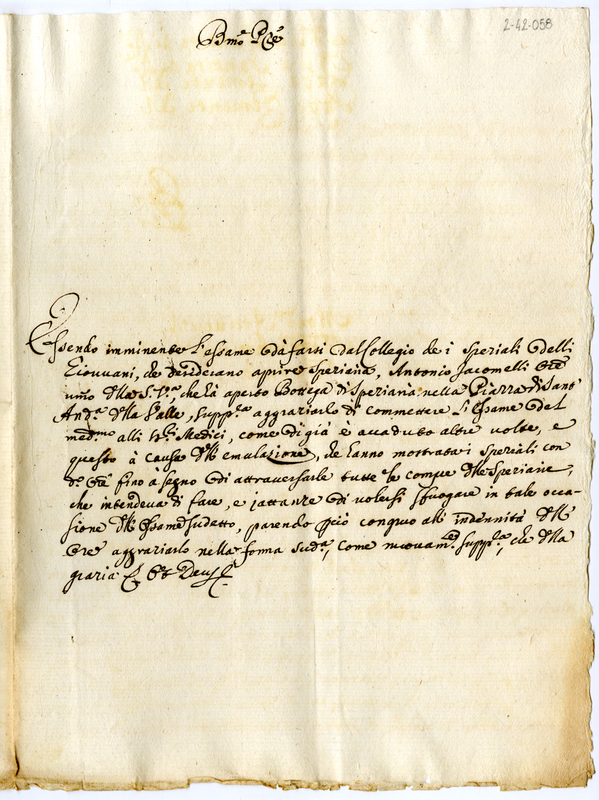 2-42-058
Bmo Pre
Essendo imminente l'essame dà farsi dal Collegio de i speziali delli
Giouani, che desiderano aprire speziaria, Antonio Jacomelli Ore
umo della S.V.a, che hà aperto Bottega di speziaria nella Piazza di Sant'
And.a della Valle, supp.ca aggraziarlo di commettere l'essame del
med.mo alli SS.ri Medici, come di già è accaduto altre volte, e
questo à causa dell emulazione, che hanno mostrata i speziali con
d.o Ore fino a segno di attraversarle tutte le compre delle speziarie,
che intendeva di fare, e jattanze di volersi sfuogare in tale occa-
sione dell Essame sudetto, parendo più congruo all' indennità dell
Ore aggraziarlo nella forma sud.a, come nuovam.te supp.ca, che della
grazia &. Et Deus &.